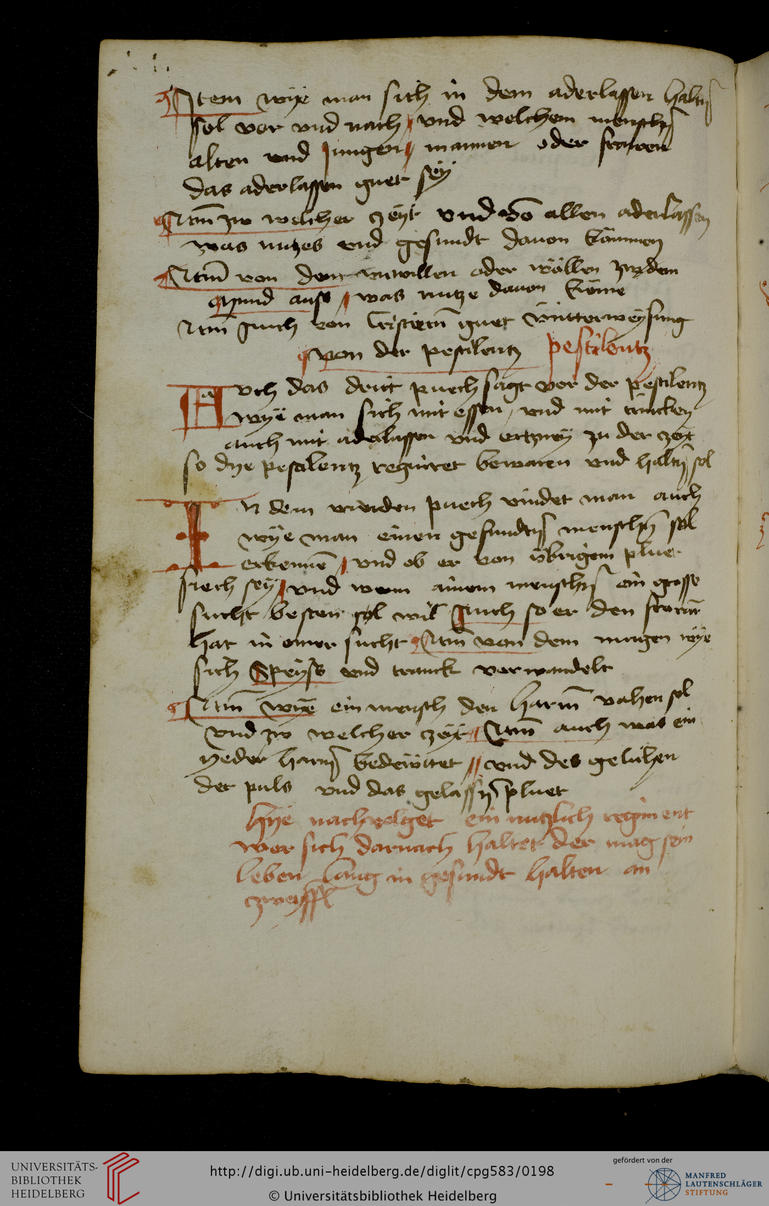 Item wye man sich in dem aderlassen halten
sol vor vnd nach vnd welchem menschen
alten vnd jungen mannen oder frawen
das aderlassen guet sey
Item zw welcher zeyt vnd von allen aderlassen
was nutzes vnd gesundt dauon kommen
Item von dem vnwillen oder wöllen zw dem
mund auss was nutze dauon kome
Item Auch von Cristiern guet vnterweysung
von der pestilentz pestilentz
Auch das dritt puech sagt vor der pestilentz
wye man sich mit essen vnd mit trincken
auch mit aderlassen vnd ertzney zu der zeyt
so dye pestilentz regniret bewaren vnd halten sol
In dem vierden puech vindet man auch
wye man einen gesundten menschen sol
erkennen vnd ob er von vbrigem pluet
siech sey vnd wem ainem menschen ein grosse
sucht besten sol wil Auch so er den
hat in einer sucht Item von dem magen wye
sich Speyss vnd tranck verwandelt
Item wye ein mensch den harm vahen sol
vnd zw welcher zeyt Item auch was ein
yeder harm bedewtet vnd des gelichen
der puls vnd das gelassen pluet
Hye nachuolget ein nutzlich regiment
wer sich darnach haltet der mag sein
leben lang in gesundt halten an
zweyffel
UNIVERSITÄTS-
BIBLIOTHEK
HEIDELBERG
http://digi.ub.uni-heidelberg.de/diglit/cpg583/0198
© Universitätsbibliothek Heidelberg
gefördert von der
MANFRED
LAUTENSCHLÄGER
STIFTUNG